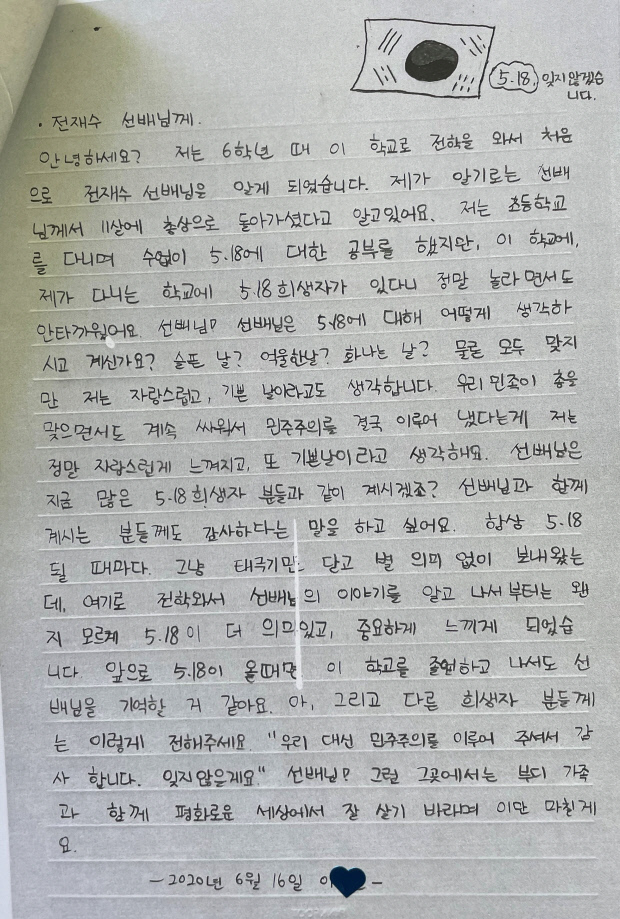 5.18, 잊지않겠습
니다.
· 전재수 선배님께.
안녕하세요? 저는 6학년 때 이 학교로 전학을 와서 처음
으로 전재수 선배님은 알게 되었습니다. 제가 알기로는 선배
님께서 11살에 총상으로 돌아가셨다고 알고있어요. 저는 초등학교
를 다니며 수없이 5.18에 대한 공부를 했지만, 이 학교에,
제가 다니는 학교에 5.18 희생자가 있다니 정말 놀라면서도
안타까웠어요. 선배님? 선배님은 5.18에 대해 어떻게 생각하
시고 계신가요? 슬픈 날? 억울한날? 화나는 날? 물론 모두 맞지
만 저는 자랑스럽고, 기쁜 날이라고도 생각합니다. 우리 민족이 총을
맞으면서도 계속 싸워서 민주주의를 결국 이루어 냈다는게 저는
정말 자랑스럽게 느껴지고, 또 기쁜날이라고 생각해요. 선배님은
지금 많은 5.18 희생자 분들과 같이 계시겠죠? 선배님과 함께
계시는 분들께도 감사하다는 말을 하고 싶어요. 항상 5.18
될 때마다. 그냥 태극기만 달고 별 의미 없이 보내왔는
데, 여기로 전학와서 선배님의 이야기를 알고 나서부터는 왠
지 모르게 5.18이 더 의미있고, 중요하게 느끼게 되었습
니다. 앞으로 5.18이 올때면 이 학교를 졸업하고 나서도 선
배님을 기억할 거 같아요. 아, 그리고 다른 희생자 분들께
는 이렇게 전해주세요. "우리 대신 민주주의를 이루어 주셔서 감
사 합니다. 잊지않을게요." 선배님? 그럼 그곳에서는 부디 가족
과 함께 평화로운 세상에서 잘 살기 바라며 이만 마칠게
요.
- 2020년 6월 16일 -